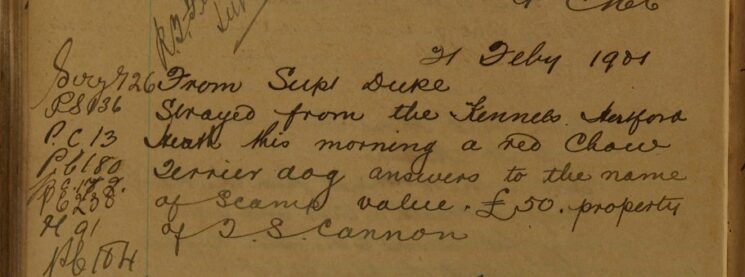 21 Feby 1901
Sergt 26 From Supt Duke
PS 136 Strayed from the Kennels Hertford
P.C. 13 Heath this morning a red Chow
PC 180 Terrier dog answers to the name
PC 238 of Scamp value. £50. property
H 91 of T. S. Cannon
PC 104